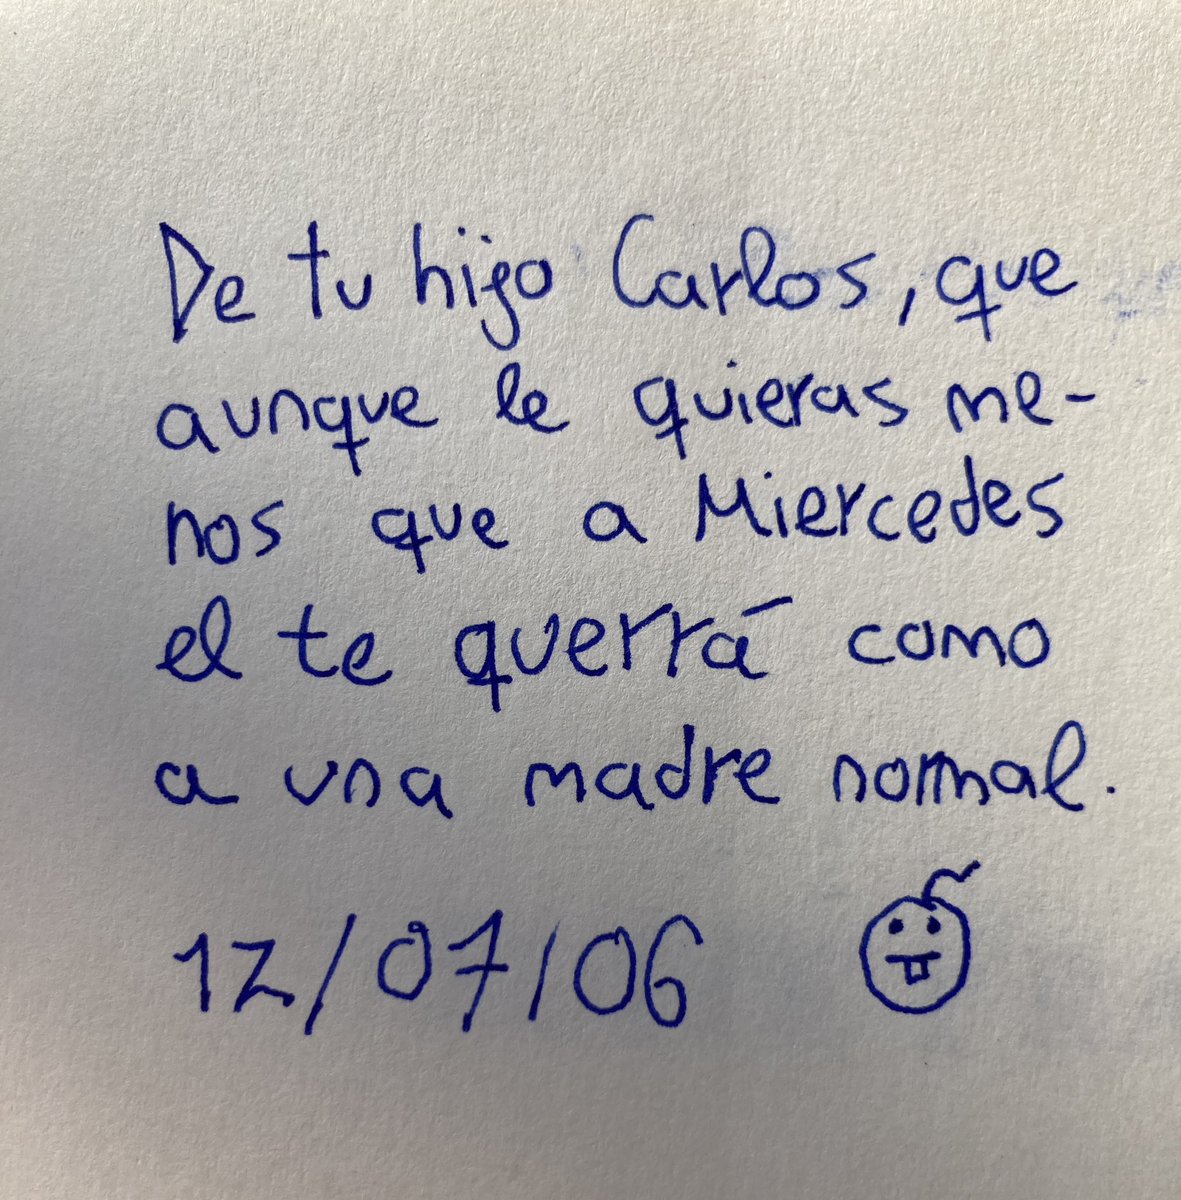 De tu hijo Carlos, que
aunque le quieras me-
nos que a Miercedes
el te querrá como
a una madre normal.
12/07/06